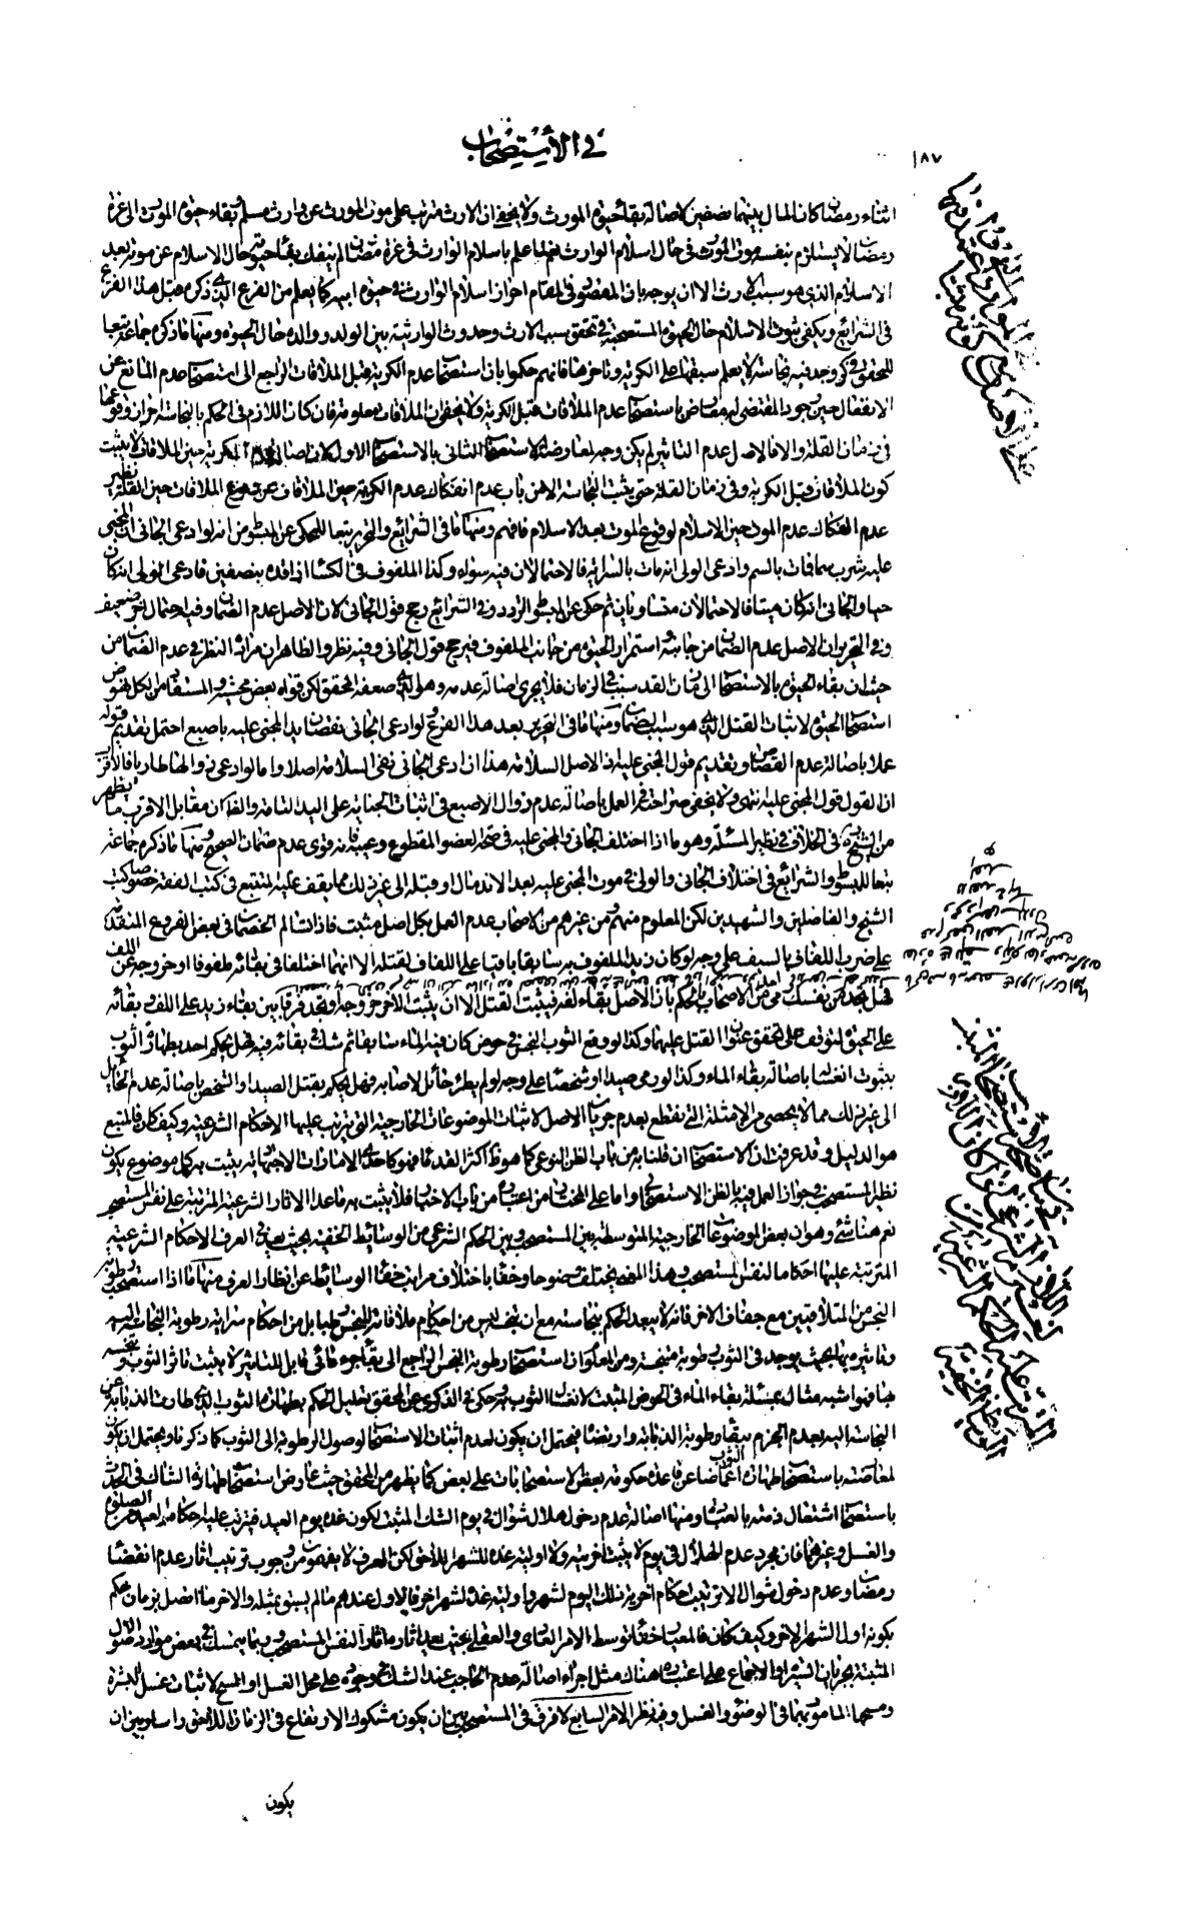 ١٨٧
في الاستصحاب
اثناء رمضان كان المال بينهما نصفين لاصالة بقاء حيوة المورث ولا يخفى ان الارث مترتب على موت المورث عن وارث مسلم وبقاء حيوة المورث الى غرة
رمضان لا يستلزم بنفسه موت المورث في حال اسلام الوارث نعم لما علم باسلام الوارث في غرة رمضان لم ينفك بقاء حيوته حال الاسلام عن موته بعد
الاسلام الذي هو سبب الارث الا ان يوجه بان المقصود في المقام احراز اسلام الوارث في حيوة ابيه كما يعلم من الفرع الذي ذكره قبل هذا الفرع
في الشرايع ويكفي ثبوت الاسلام حال الحيوة المستصحبة في تحقق سبب الارث وحدوث الوارثية بين الولد ووالده حال الحيوة ومنها ما ذكره جماعة تبعا
للمحقق في كر وجد فيه نجاسة لا يعلم سبقها على الكرية وتاخرها فانهم حكموا بان استصحاب عدم الكرية قبل الملاقات الراجع الى استصحاب عدم المانع عن
الانفعال حين وجود المقتضي له معارض باستصحاب عدم الملاقات قبل الكرية ولا يخفى ان الملاقات معلومة فان كان اللازم في الحكم بالنجاسة احراز وقوعها
في زمان القلة والا فالاصل عدم التاثير لم يكن وجه لمعارضة الاستصحاب الثاني بالاستصحاب الاول لان اصالة عدم الكرية حين الملاقات لا يثبت
كون الملاقات قبل الكرية وفي زمان القلة حتى يثبت النجاسة الا من باب عدم انفكاك عدم الكرية حين الملاقات عن وقوع الملاقات حين القلة نظير
عدم انفكاك عدم الموت حين الاسلام لوقوع الموت بعد الاسلام فافهم ومنها ما في الشرايع والتحرير تبعا للمحكي عن المبسوط من انه لو ادعى الجاني ان المجني
عليه شرب سما فمات بالسم وادعى الولي انه مات بالسراية فالاحتمالان فيه سواء وكذا الملفوف في الكساء اذا قده بنصفين فادعى الولي انه كان
حيا والجاني انه كان ميتا فالاحتمالان متساويان ثم حكى عن المبسوط التردد وفي الشرايع رجح قول الجاني لان الاصل عدم الضمان وفيه احتمال اخر ضعيف
وفي التحرير ان الاصل عدم الضمان من جانبه واستمرار الحيوة من جانب الملفوف فيرجح قول الجاني وفيه نظر والظاهر ان مراده النظر في عدم الضمان من
حيث ان بقاء الحيوة بالاستصحاب الى زمان القد سبب في الزمان فلا يجري اصالة عدمه وهو الذي ضعفه المحقق لكن قواه بعض محشيه والمستفاد من الكل نهوض
استصحاب الحيوة لاثبات القتل الذي هو سبب الضمان ومنها ما في التحرير بعد هذا الفرع ولو ادعى الجاني نقصان يد المجني عليه باصبع احتمل تقديم قوله
عملا باصالة عدم القصاص وتقديم قول المجني عليه اذ الاصل السلامة هذا ان ادعى الجاني نفي السلامة اصلا واما لو ادعى زوالها طاريا فالاقرب
ان القول قول المجني عليه انتهى ولا يخفى صراحته في العمل باصالة عدم زوال الاصبع في اثبات الجناية على اليد التامة والظاهر ان مقابل الاقرب ما يظهر
من الشيخ في الخلاف في نظير المسئلة وهو ما اذا اختلف الجاني والمجني عليه في صحة العضو المقطوع وعيبه فانه قوى عدم ضمان الصحيح ومنها ما ذكره جماعة
تبعا للمبسوط والشرايع في اختلاف الجاني والولي في موت المجني عليه بعد الاندمال او قبله الى غير ذلك مما يقف عليه المتتبع في كتب الفقه خصوصا كتب
الشيخ والفاضلين والشهيدين لكن المعلوم منهم ومن غيرهم من الاصحاب عدم العمل بكل اصل مثبت فاذا تسالم الخصمان في بعض الفروع المتقدمة
على ضرب اللفاف بالسيف على وجه لو كان زيد الملفوف به سابقا باقيا على اللفاف لقتله الا انهما اختلفا في بقائه ملفوفا او خروجه عن اللف
فهل تجد من نفسك رمي من الاصحاب بالحكم بان الاصل بقاء لفه فيثبت القتل الا ان يثبت الاخر خروجه او تجد فرقا بين بقاء زيد على اللف وبقائه
على الحيوة لتوقف على تحقق عنوان القتل عليهما وكذا لو وقع الثوب النجس في حوض كان فيه الماء سابقا ثم شك في بقائه فيه فهل يحكم احد بطهارة الثوب
بثبوت انغساله باصالة بقاء الماء وكذا لو رمى صيدا او شخصا على وجه لو لم يطرء حائل لاصابه فهل يحكم بقتل الصيد او الشخص باصالة عدم الحايل
الى غير ذلك مما لا يحصى من الامثلة التي نقطع بعدم جريان الاصل لاثبات الموضوعات الخارجية التي يترتب عليها الاحكام الشرعية وكيف كان فالمتبع
هو الدليل وقد عرفت ان الاستصحاب ان قلنا به من باب الظن النوعي كما هو ظاهر اكثر القدماء فهو كاحدى الامارات الاجتهادية يثبت به كل موضوع يكون
نظير المستصحب في جواز العمل فيه بالظن الاستصحابي واما على المختار من اعتباره من باب الاخبار فلا يثبت به ما عدا الاثار الشرعية المترتبة على نفس المستصحب
نعم هنا شئ وهو ان بعض الموضوعات الخارجية المتوسطة بين المستصحب وبين الحكم الشرعي من الوسائط الخفية بحيث يعد في العرف الاحكام الشرعية
المترتبة عليها احكاما لنفس المستصحب وهذا المعنى يختلف وضوحا وخفاء باختلاف مراتب خفاء الوسائط عن انظار العرف منها ما اذا استصحب رطوبة
النجس من المتلاقيين مع جفاف الاخر فانه لا يبعد الحكم بنجاسته مع ان تنجسه ليس من احكام ملاقاته للنجس رطبا بل من احكام سراية رطوبة النجاسة اليه
وتاثره بها بحيث يوجد في الثوب رطوبة متنجسة ومن المعلوم ان استصحاب رطوبة النجس الراجع الى بقاء جزء مائي قابل للتاثير لا يثبت تاثر الثوب وتنجسه
بها فهو اشبه مثال بمسئلة بقاء الماء في الحوض المثبت لانغسال الثوب به وحكي في الذكرى عن المحقق تعليل الحكم بطهارة الثوب الذي طارت الذبابة عن
النجاسة اليه بعدم الجزم ببقاء رطوبة الذبابة وارتضاه فيحتمل ان يكون لعدم اثبات الاستصحاب لوصول الرطوبة الى الثوب كما ذكرنا ويحتمل ان يكون
لمعارضته باستصحاب طهارة الثوب اغماضا عن قاعدة حكومة بعض الاستصحابات على بعض كما يظهر من المحقق حيث عارض استصحاب طهارة الشاك في الحدث
باستصحاب اشتغال ذمته بالعبادة ومنها اصالة عدم دخول هلال شوال في يوم الشك المثبت لكون غده يوم العيد فيترتب عليه احكام العيد من الصلوة
والغسل وغيرهما فان مجرد عدم الهلال في يوم لا يثبت اخريته ولا اولية غده للشهر اللاحق لكن العرف لا يفهمون من وجوب ترتيب اثار عدم انقضاء
رمضان وعدم دخول شوال الا ترتيب احكام اخرية ذلك اليوم لشهر واولية غده لشهر اخر فالاول عندهم ما لم يسبق بمثله والاخر ما اتصل بزمان حكم
بكونه اول الشهر الاخر وكيف كان فالمعيار خفاء توسط الامر العادي والعقلي بحيث يعد اثاره اثارا لنفس المستصحب وربما يتمسك في بعض موارد الاصول
المثبتة بجريان السيرة او الاجماع على اعتباره هناك مثل اجراء اصالة عدم الحاجب عند الشك في وجوده على محل الغسل او المسح لاثبات غسل البشرة
ومسحها المامور بهما في الوضوء والغسل وفيه نظر الامر السابع لا فرق في المستصحب بين ان يكون مشكوك الارتفاع في الزمان اللاحق راسا وبين ان
يكون